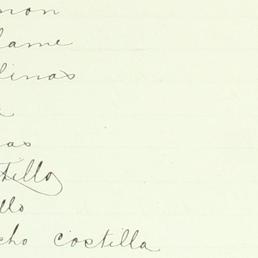 mon
lame
linas
as
tillo
llo
cho costilla